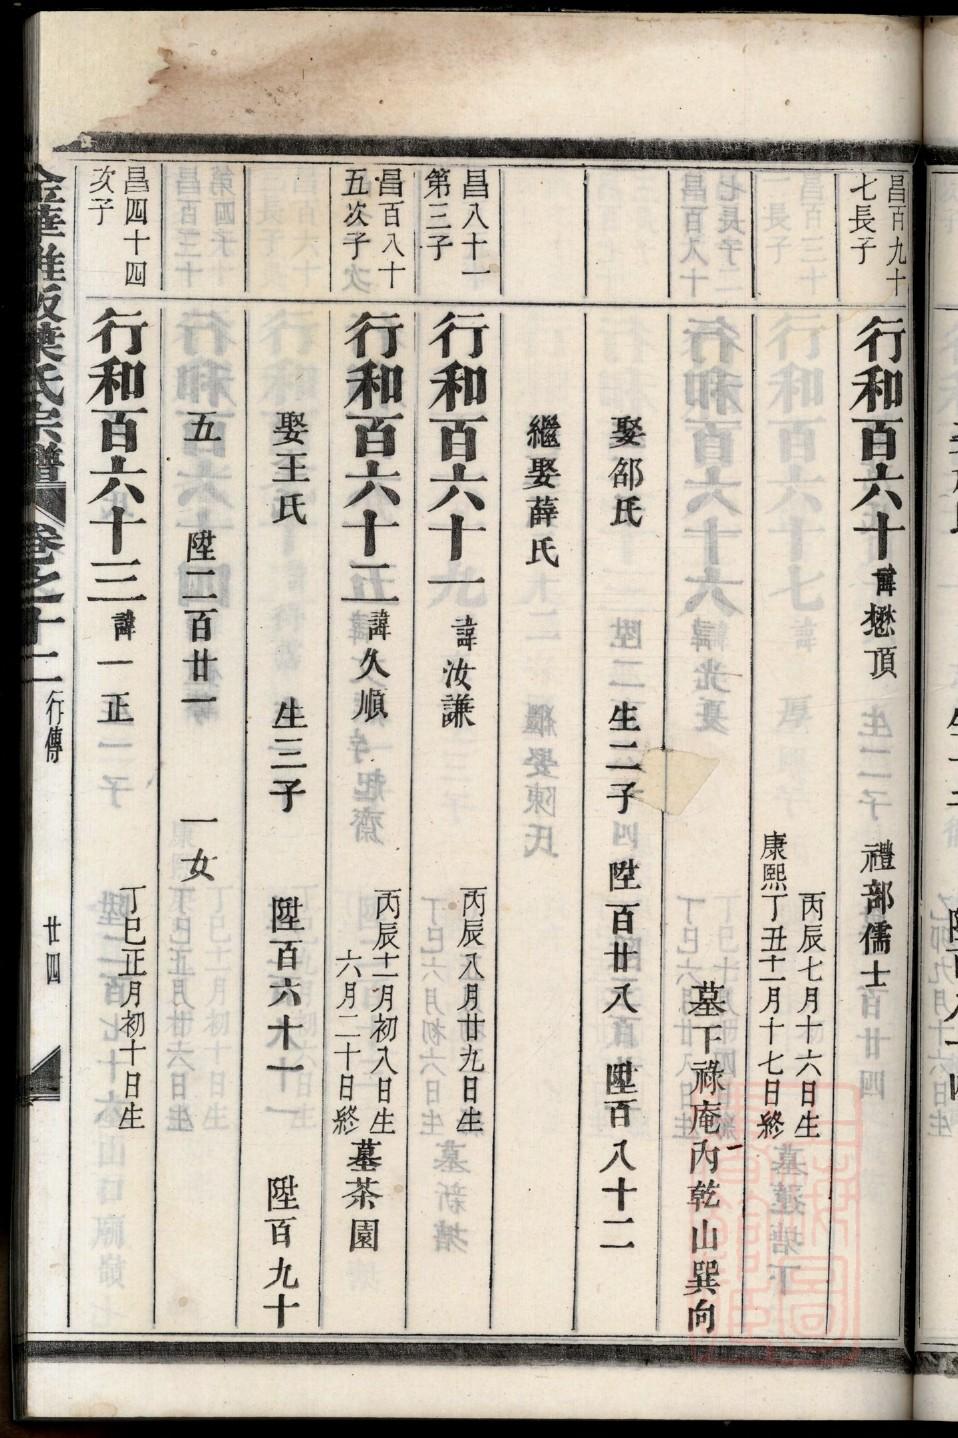 昌百九十
七長子
行和百六十諱懋頂
禮部儒士
丙辰七月十六日生
康熙丁丑十一月十七日終
墓下祿庵內乾山巽向
娶邵氏
生二子
陞百廿八
陞百八十二
繼娶薛氏
昌八十一
第三子
行和百六十一諱汝謙
丙辰八月廿九日生
昌百八十
五次子
行和百六十二諱久順
丙辰十一月初八日生
六月二十日終
墓茶園
娶王氏
生三子
陞百六十一
陞百九十
五
陞二百廿一
一女
昌四十四
次子
行和百六十三諱一正
丁巳正月初十日生
葉氏宗譜
卷之十二
行傳
廿四